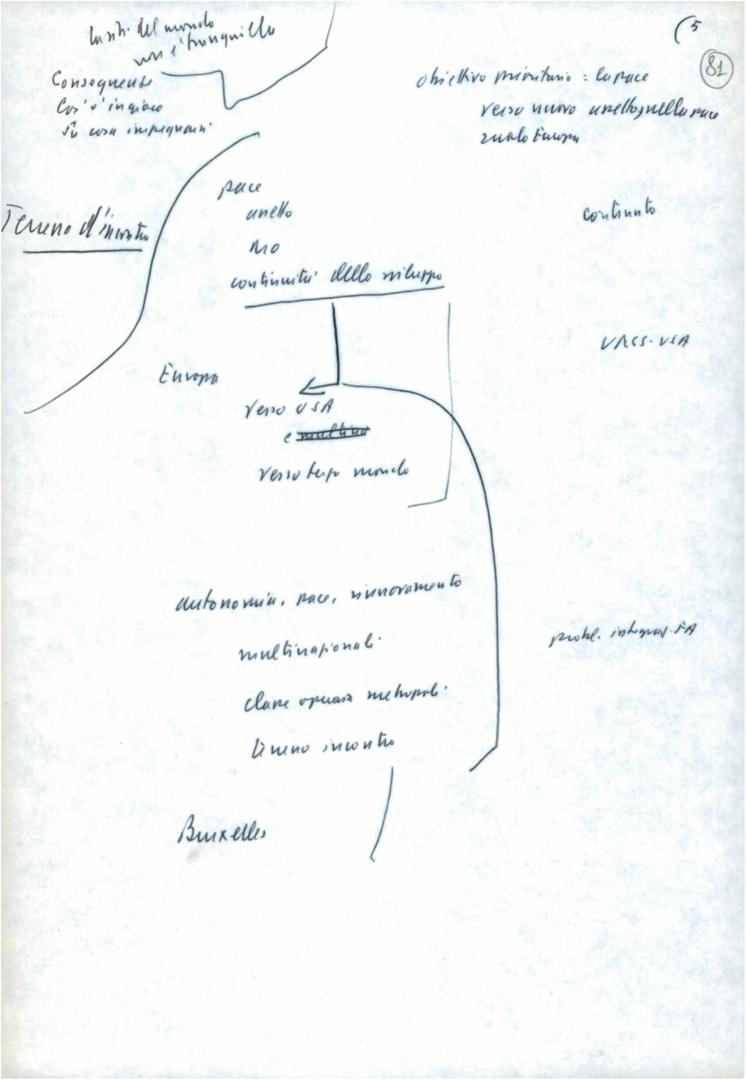 (5
81
del mondo
non è tranquillo
Conseguenze
Cos'è in gioco
su cosa impegnarsi
obiettivo prioritario = la pace
verso nuovo assetto, nella pace
ruolo Europa
Terreno d'incontro
pace
assetto
no
continuità dello sviluppo
contenuto
URSS-USA
Europa
verso USA
e
verso terzo mondo
autonomia, pace, rinnovamento
multinazionali
classe operaia metropoli
terreno incontro
probl.
Bruxelles